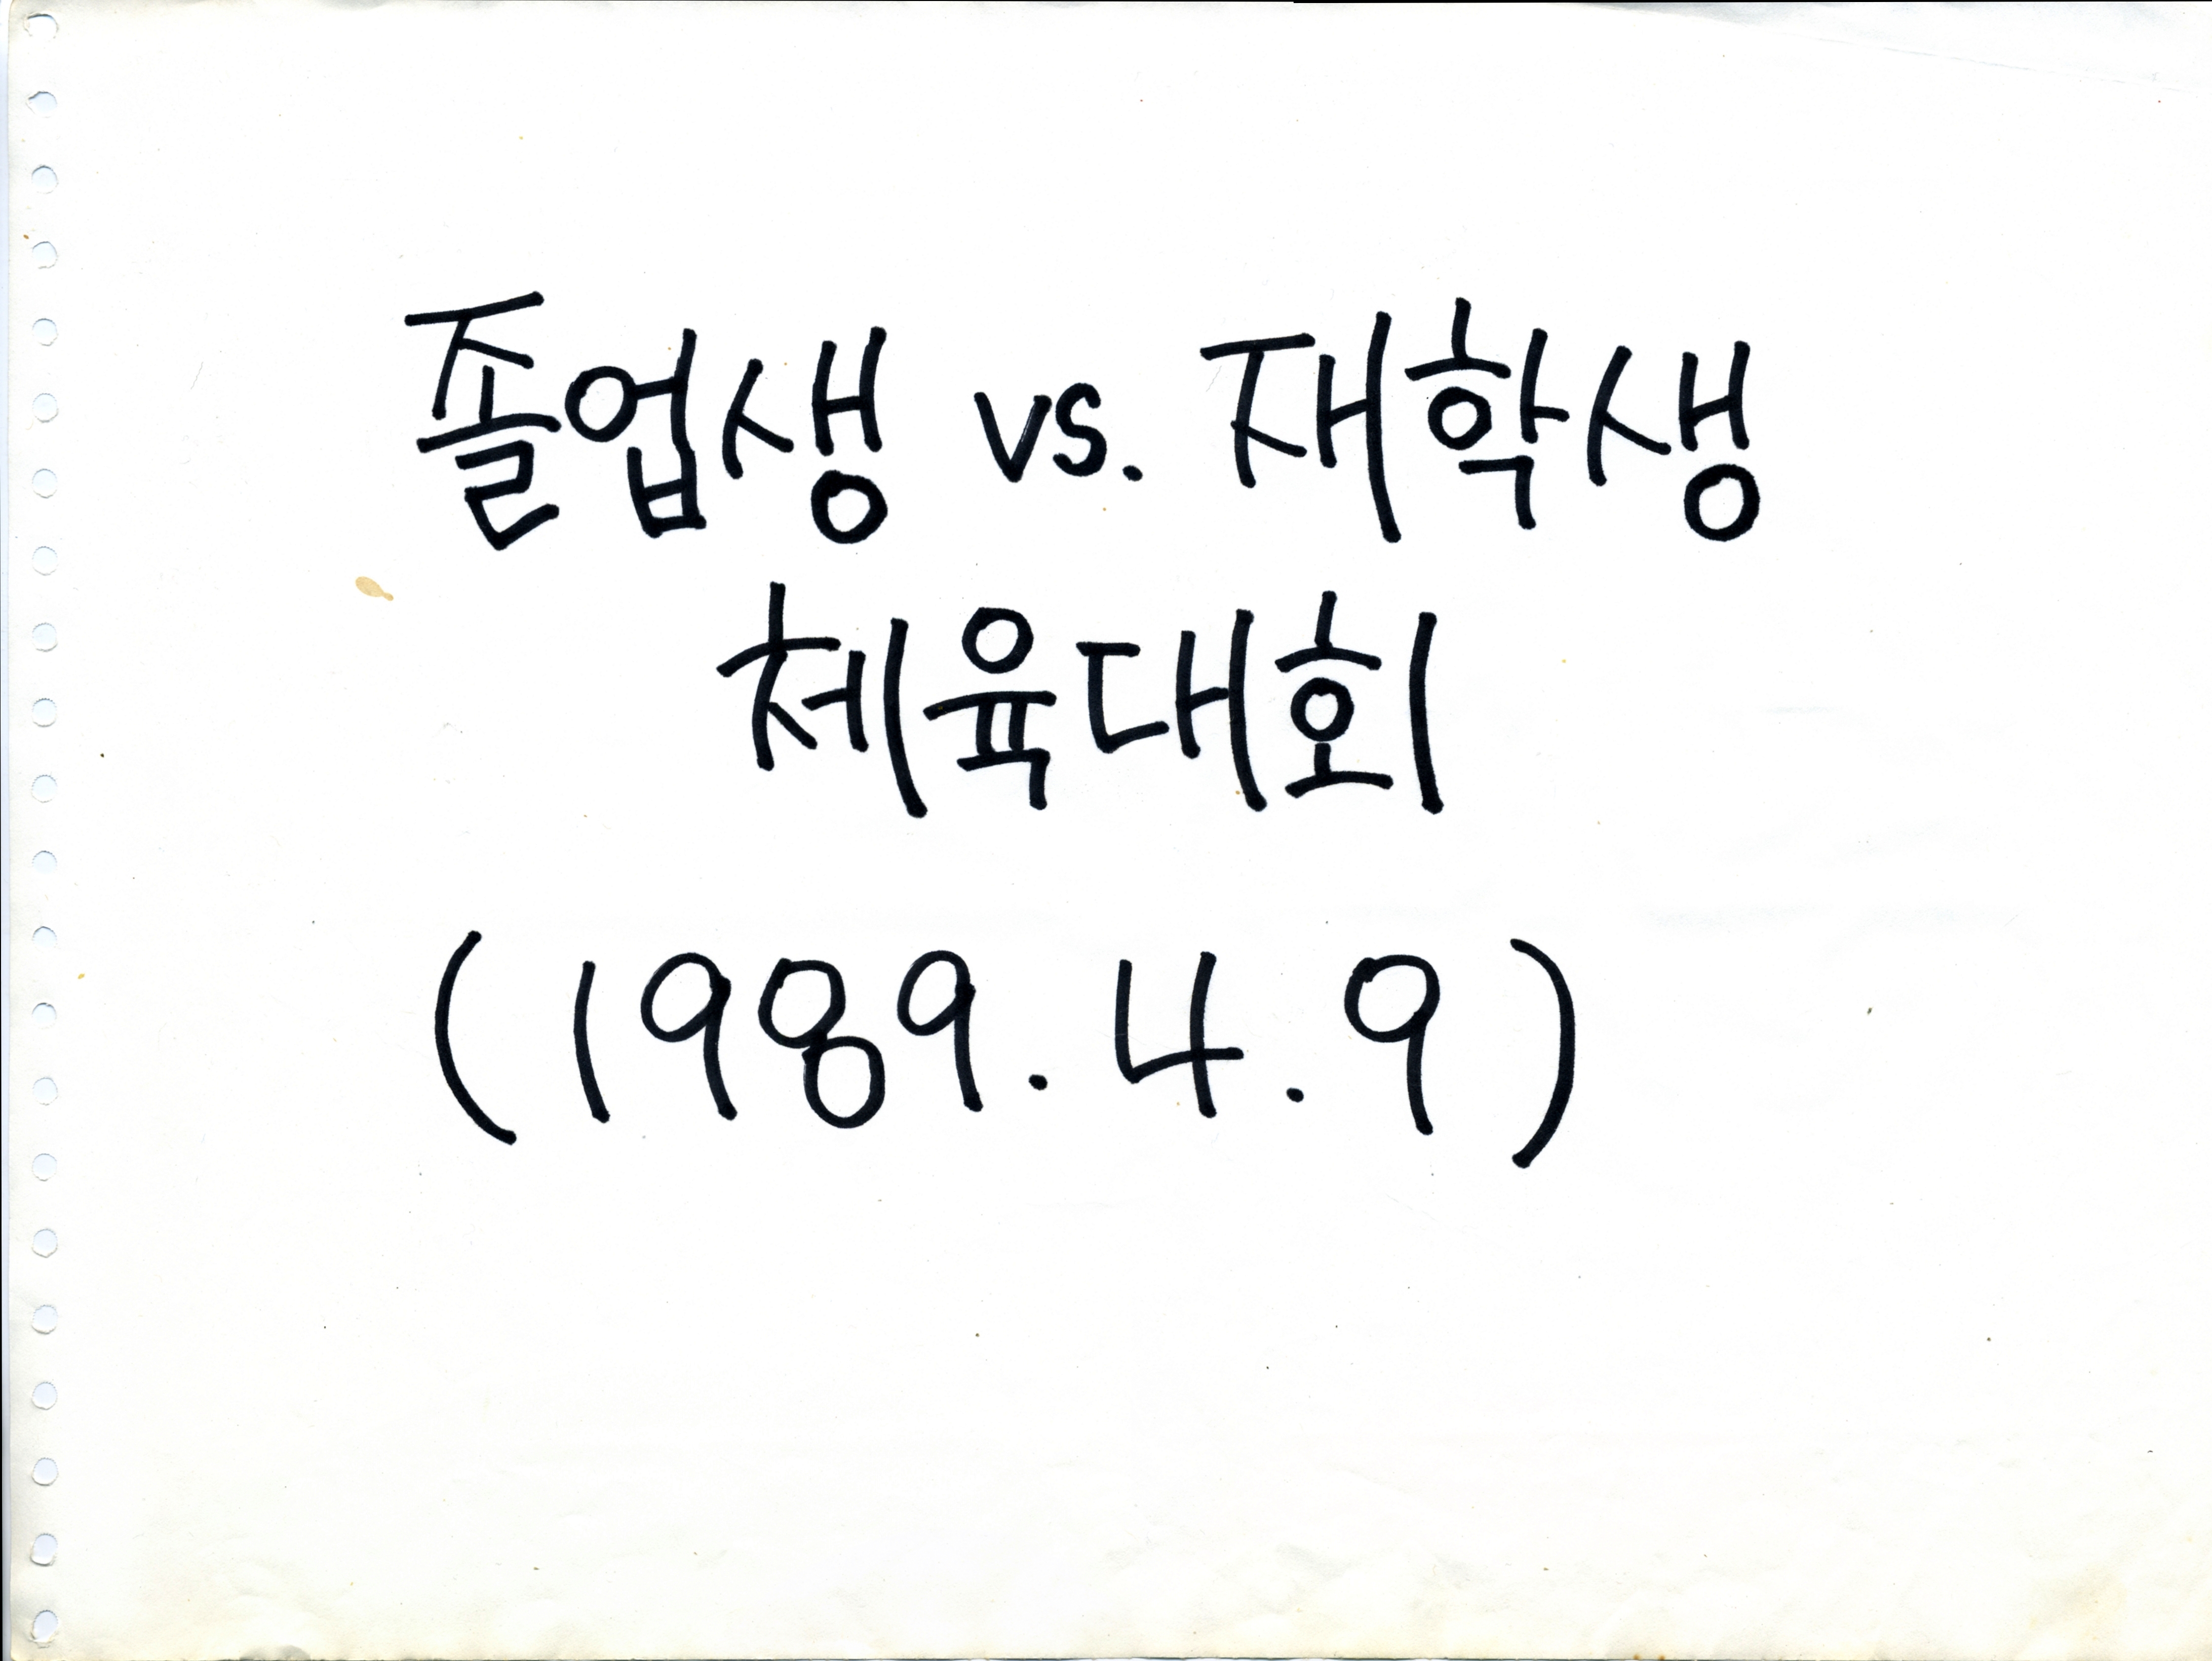 졸업생 vs. 재학생
체육대회
(1989.4.9)